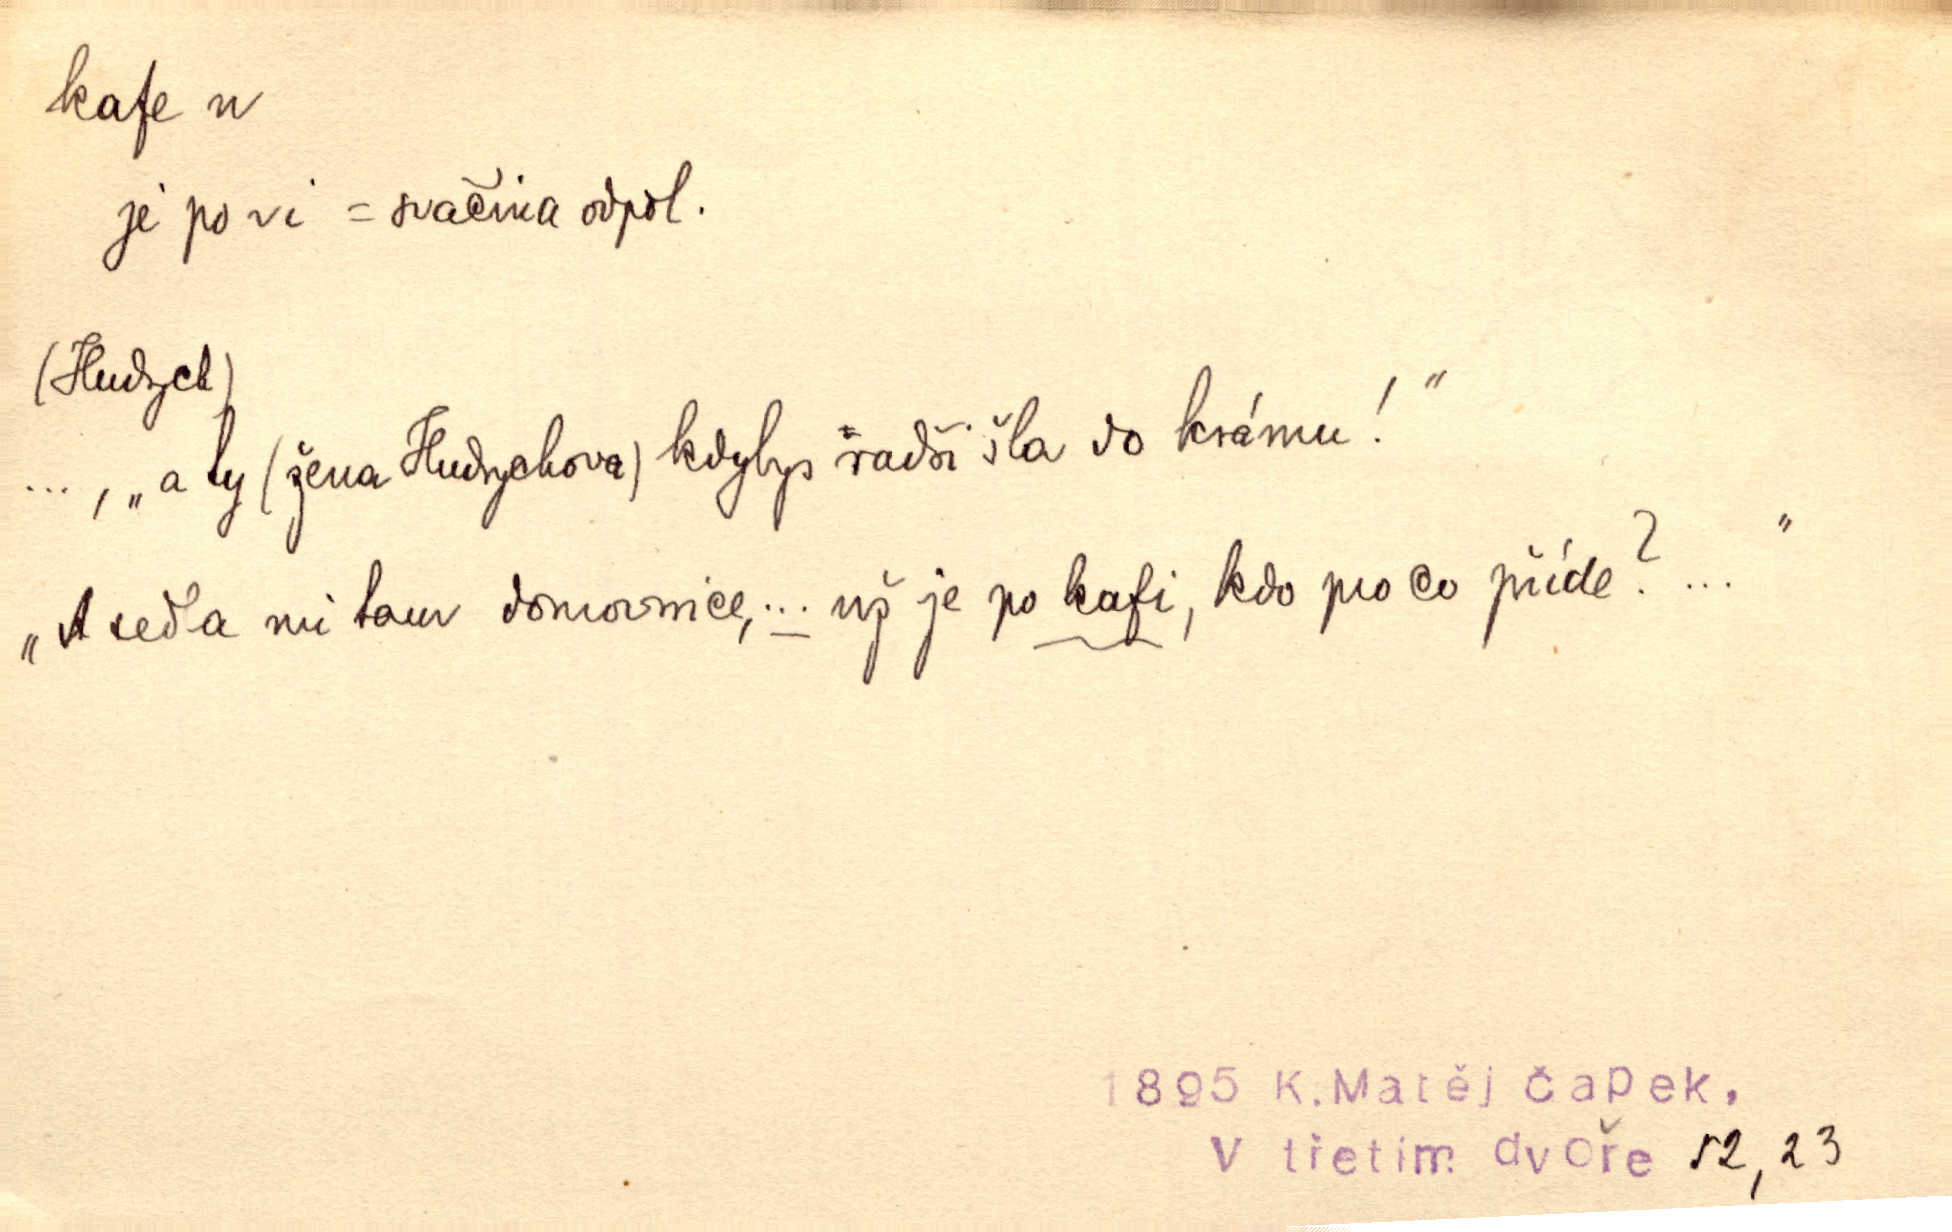 kafe n
je po vi = svačina odpol.
(Hudrych)
..., „a ty (žena Hudrychova) kdybys radši šla do krámu!“
„A seďa mi tam domovnice, ... už je po kafi, kdo pro co příde? ... “
1895 K. Matěj Čapek,
V třetím dvoře 52, 23